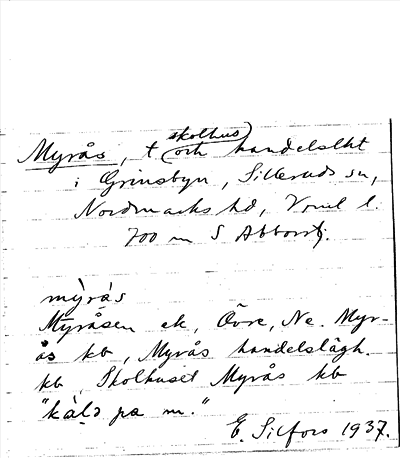 Myrås, t. (skolhus)
och handelslht
i Grinsbyn, Silleruds sn,
Nordmarks hd, Vrml l.
700 m S Abborrtj.
mỳrás
Myråsen ek, Övre, Ne. Myr-
ås kb, Myrås handelslägh.
kb, Skolhuset Myrås kb
"kàlạ pa m."
E. Silfors 1937.